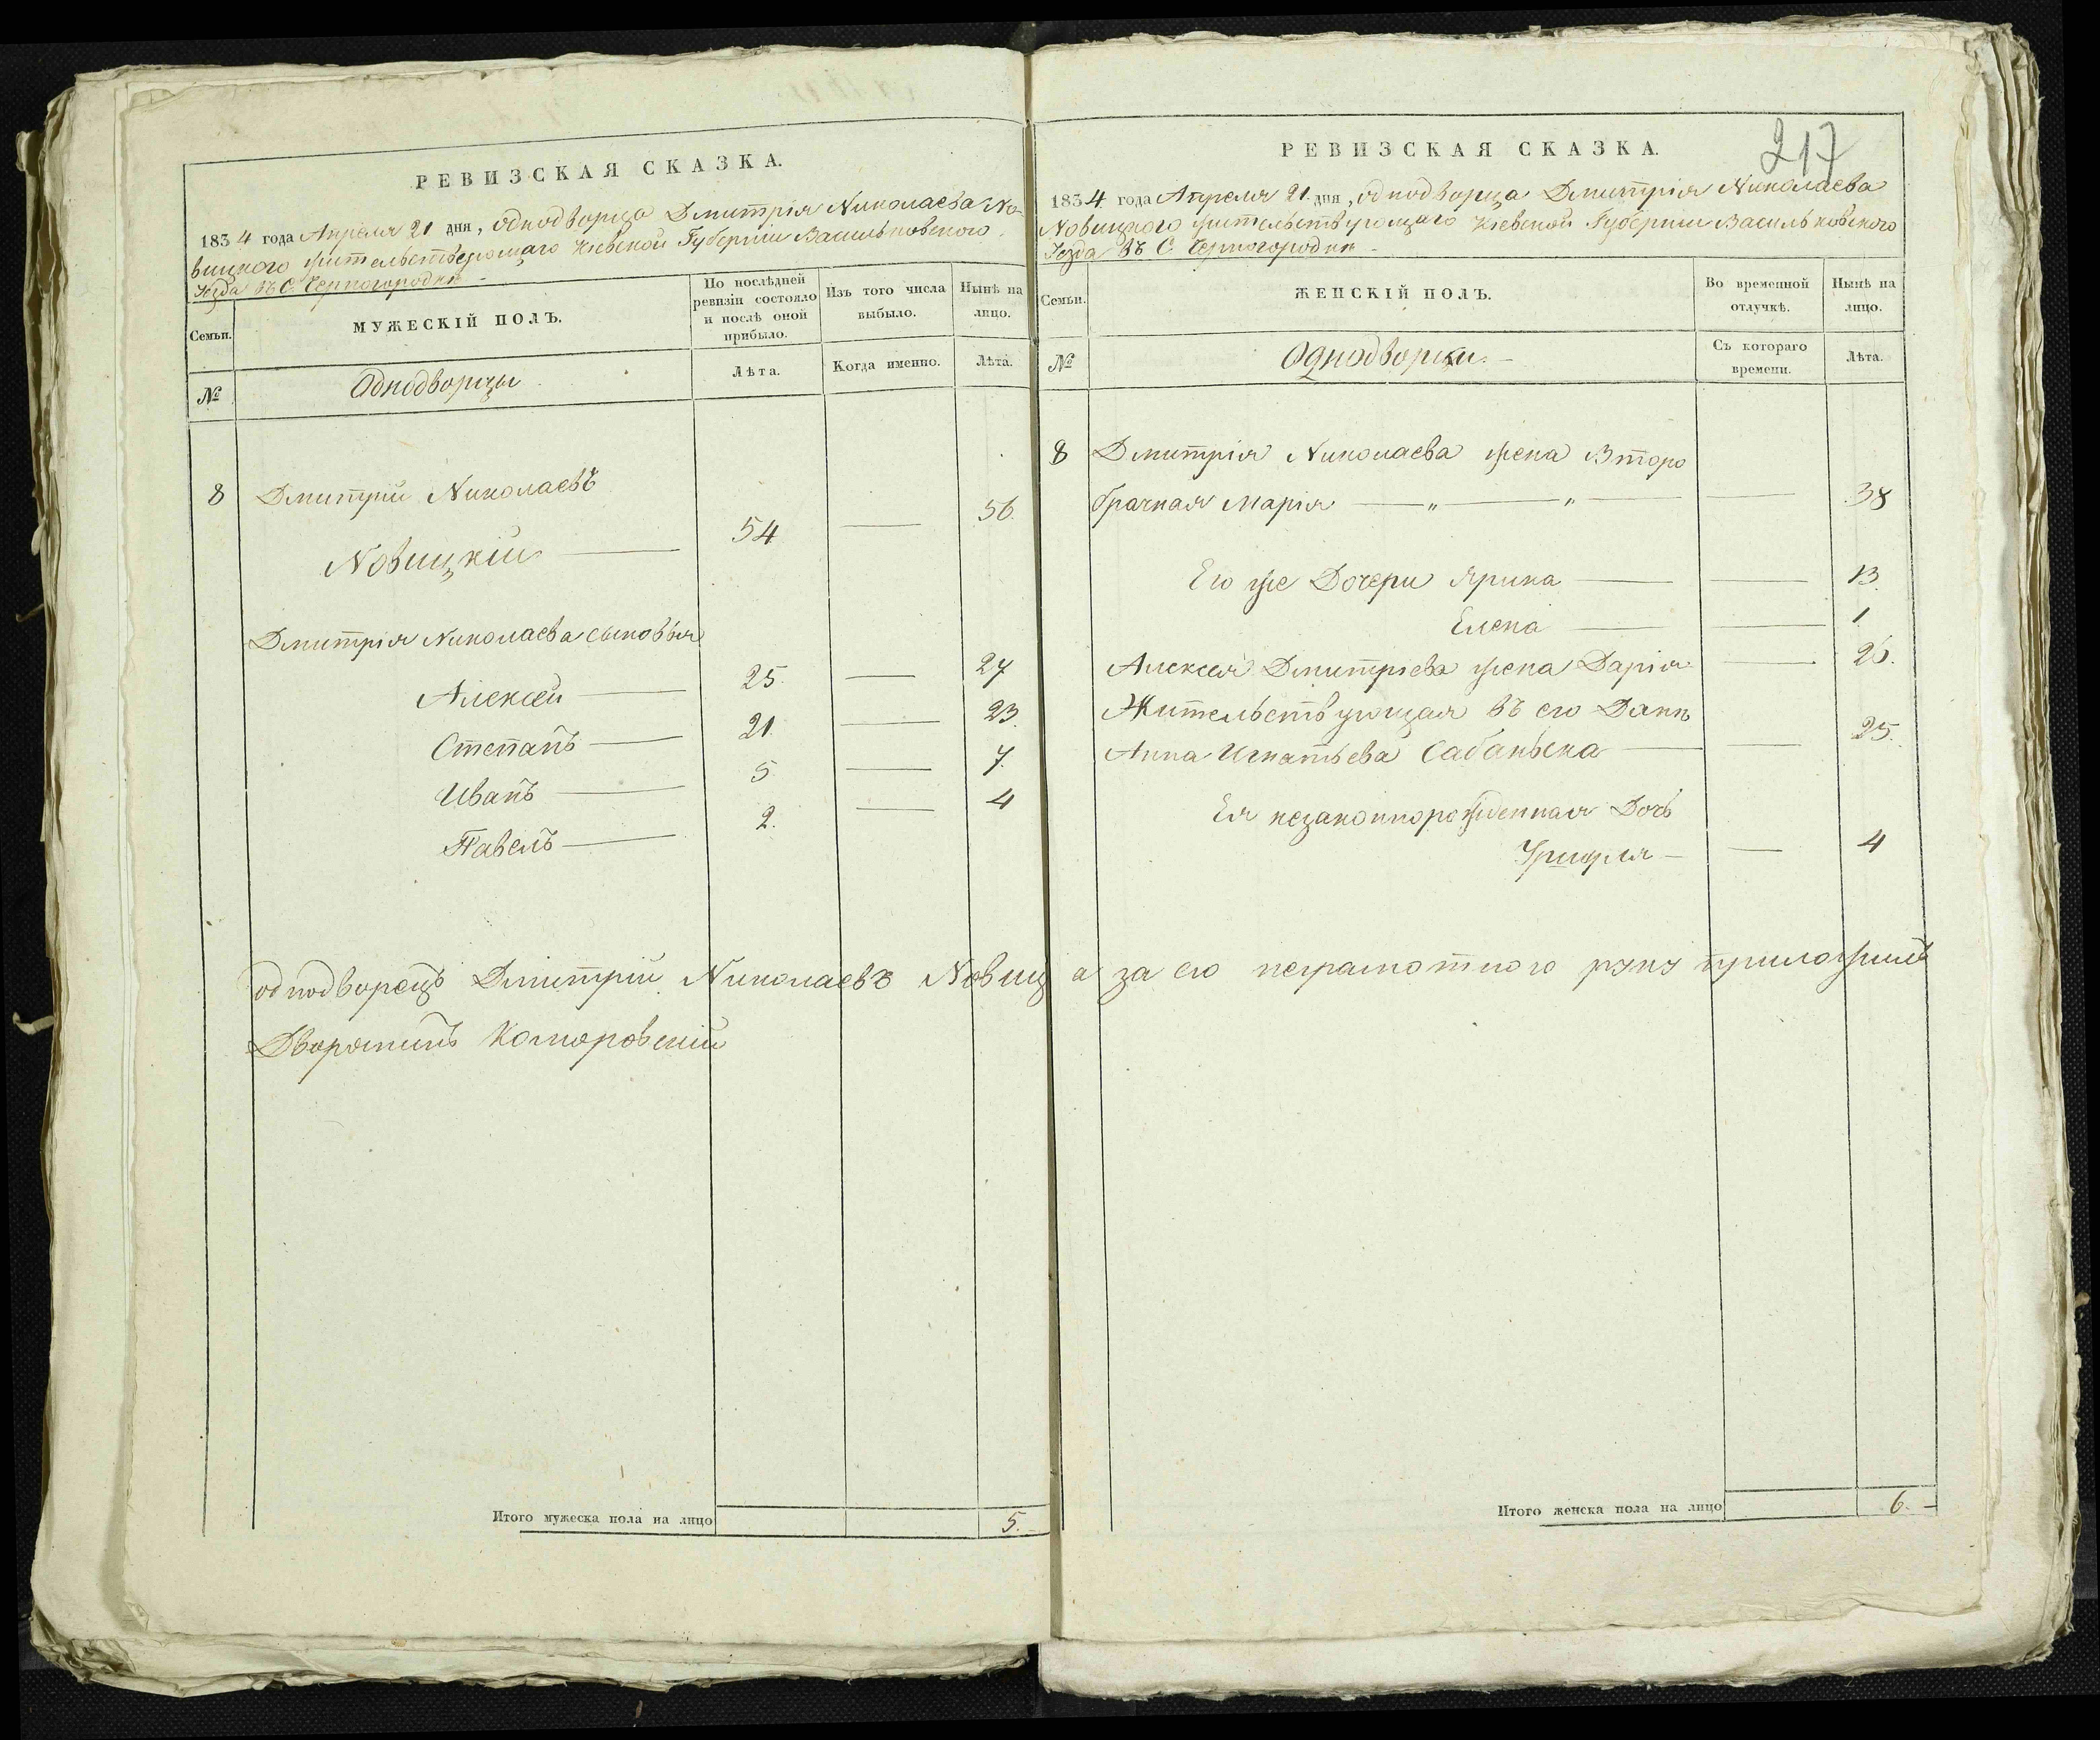 РЕВИЗСКАЯ СКАЗКА.
1834 года Апреля 21 дня, однодворца Дмитрія Николаева Но-
вицкого жительствующаго Кіевской Губерніи Васильковского
Уезда въ С. Черногородке -
Семьи.
МУЖЕСКІЙ ПОЛЪ.
По послѣдней ревизіи состояло и послѣ оной прибыло.
Изъ того числа выбыло.
Нынѣ на лицо.
№
Однодворцы
Лѣта.
Когда именно.
Лѣта.
8 Дмитрий Николаевъ
Новицкій — 54 — 56.
Дмитрія Николаева сыновья
Алексей — 25. — 27
Степанъ — 21. — 23.
Иванъ — 5. — 7.
Павелъ — 2. — 4
РЕВИЗСКАЯ СКАЗКА.
217
1834 года Апреля 21 дня, однодворца Дмитрія Николаева
Новицкого жительствующаго Кіевской Губерніи Васильковского
Уезда въ С. Черногородке -
Семьи.
ЖЕНСКІЙ ПОЛЪ.
Во временной отлучкѣ.
Нынѣ на лицо.
№
Однодворки. -
Съ котораго времени.
Лѣта.
8 Дмитрія Николаева жена Второ
брачная Марія — " — " — — 38
Его же Дочери Ярина — — 13.
Елена — — 1
Алексея Дмитріева жена Дарія — 26.
Жительствующая въ его Доми
Анна Игнатьева Сабаньска — — 25.
Ея незаконнорожденная Дочь
— — 4
однодворецъ Дмитрий Николаевъ Новиц а за его неграмотного руку приложилъ
Дворянинъ Коморовскій
Итого мужеска пола на лицо 5.
Итого женска пола на лицо 6. -